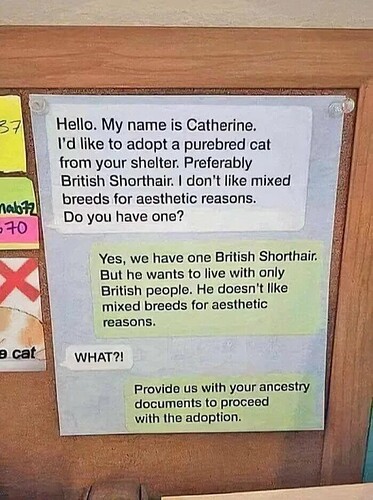 37
nab72
70
e cat
Hello. My name is Catherine.
I'd like to adopt a purebred cat
from your shelter. Preferably
British Shorthair. I don't like mixed
breeds for aesthetic reasons.
Do you have one?
Yes, we have one British Shorthair.
But he wants to live with only
British people. He doesn't like
mixed breeds for aesthetic
reasons.
WHAT?!
Provide us with your ancestry
documents to proceed
with the adoption.